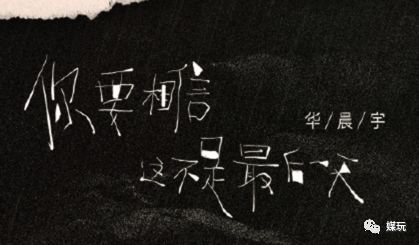 你要相信
华/晨/宇
这不是最后一天
媒玩